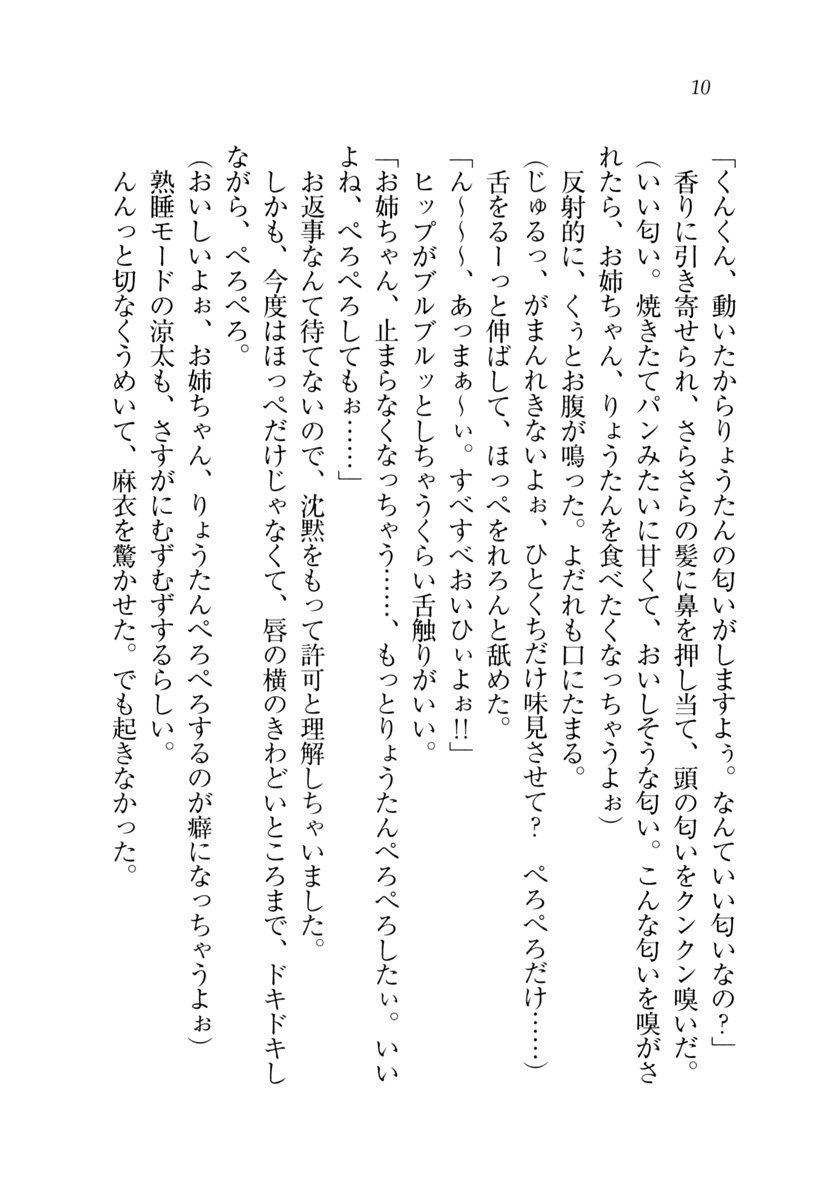 10
「くんくん、動いたからりょうたんの匂いがしますよぅ。なんていい匂いなの?」
香りに引き寄せられ、さらさらの髪に鼻を押し当て、頭の匂いをクンクン嗅いだ。
(いい匂い。焼きたてパンみたいに甘くて、おいしそうな匂い。こんな匂いを嗅がさ
れたら、お姉ちゃん、りょうたんを食べたくなっちゃうよぉ)
反射的に、くぅとお腹が鳴った。よだれも口にたまる。
(じゅるっ、がまんれきないよぉ、ひとくちだけ味見させて? ぺろぺろだけ……)
舌をるーっと伸ばして、ほっぺをれろんと舐めた。
「ん〜〜〜、あっまぁ〜ぃ。すべすべおいひぃよぉ!!」
ヒップがブルブルッとしちゃうくらい舌触りがいい。
「お姉ちゃん、止まらなくなっちゃう……、もっとりょうたんぺろぺろしたぃ。いい
よね、ぺろぺろしてもぉ……」
お返事なんて待てないので、沈黙をもって許可と理解しちゃいました。
しかも、今度はほっぺだけじゃなくて、唇の横のきわどいところまで、ドキドキし
ながら、ぺろぺろ。
(おいしいよぉ、お姉ちゃん、りょうたんぺろぺろするのが癖になっちゃうよぉ)
熟睡モードの涼太も、さすがにむずむずするらしい。
んんっと切なくうめいて、麻衣を驚かせた。でも起きなかった。